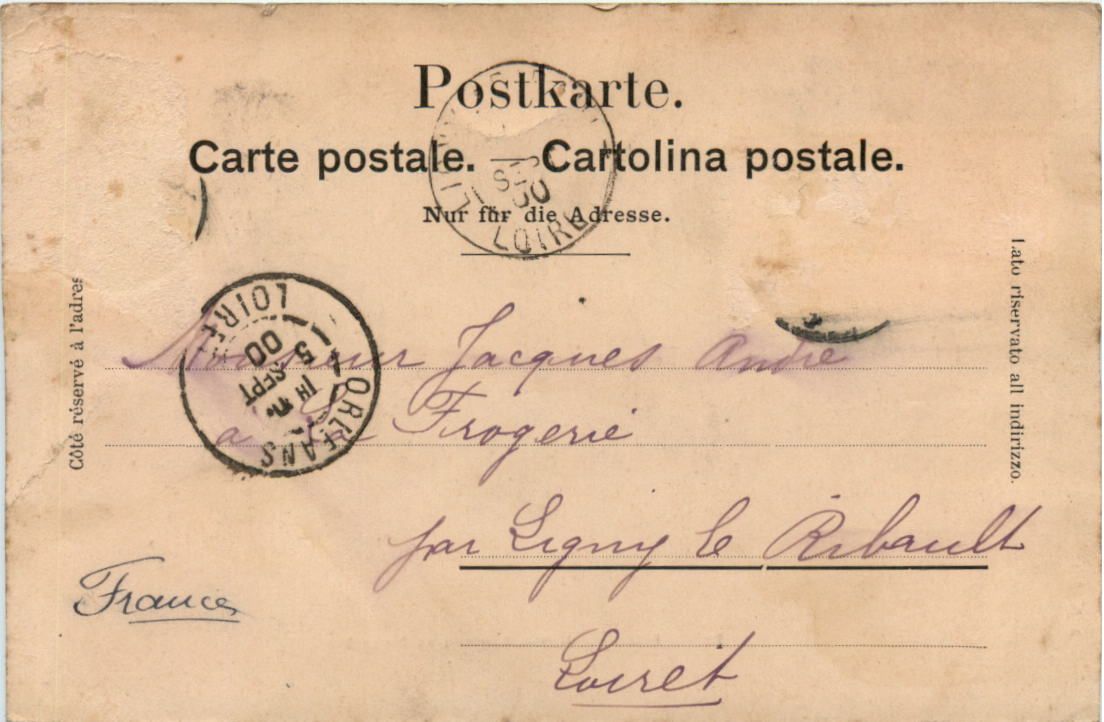 Postkarte.
Carte postale. Cartolina postale.
Nur für die Adresse.
LOIRET
Côté réservé à l'adres
Lato riservato all indirizzo.
ORLEANS
LOIRET
5
SEPT
00
Monsieur Jacques André
a la Frogerie
par Ligny le Ribault
Loiret
France